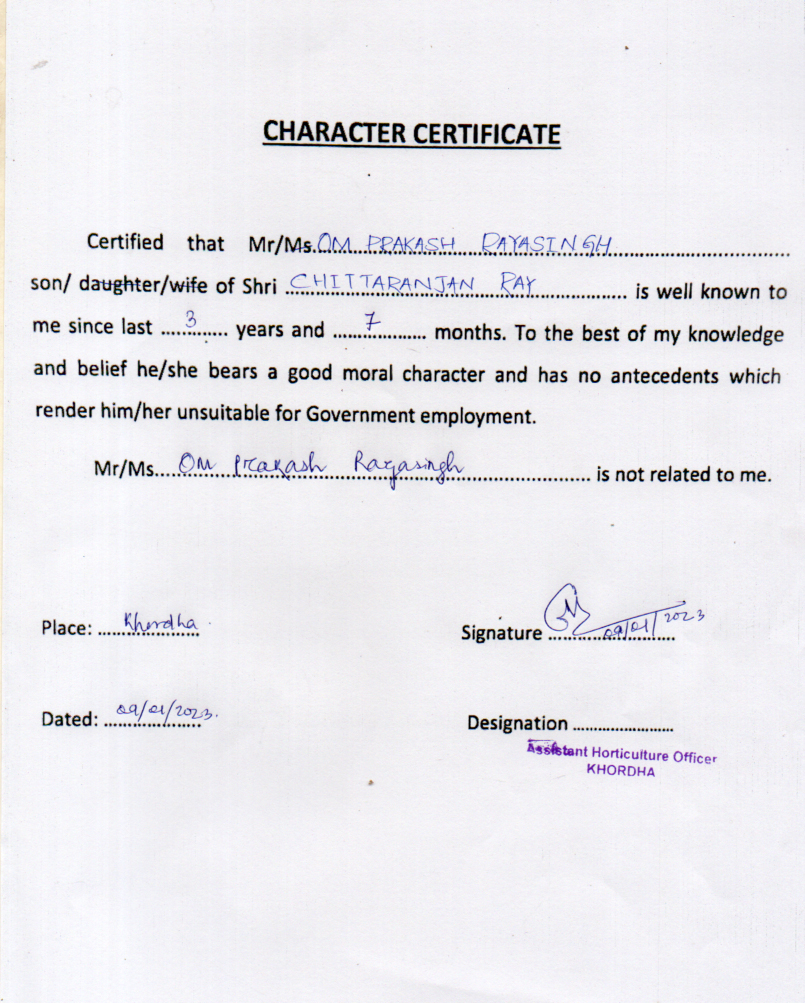 CHARACTER CERTIFICATE
Certified that Mr/Ms. OM PRAKASH RAYASINGH
son/ daughter/wife of Shri CHITTARANJAN RAY is well known to
me since last 3 years and 7 months. To the best of my knowledge
and belief he/she bears a good moral character and has no antecedents which
render him/her unsuitable for Government employment.
Mr/Ms. Om Prakash Rayasingh is not related to me.
Place: Khordha
Signature 09/01/2023
Dated: 09/01/2023.
Designation
Assistant Horticulture Officer
KHORDHA